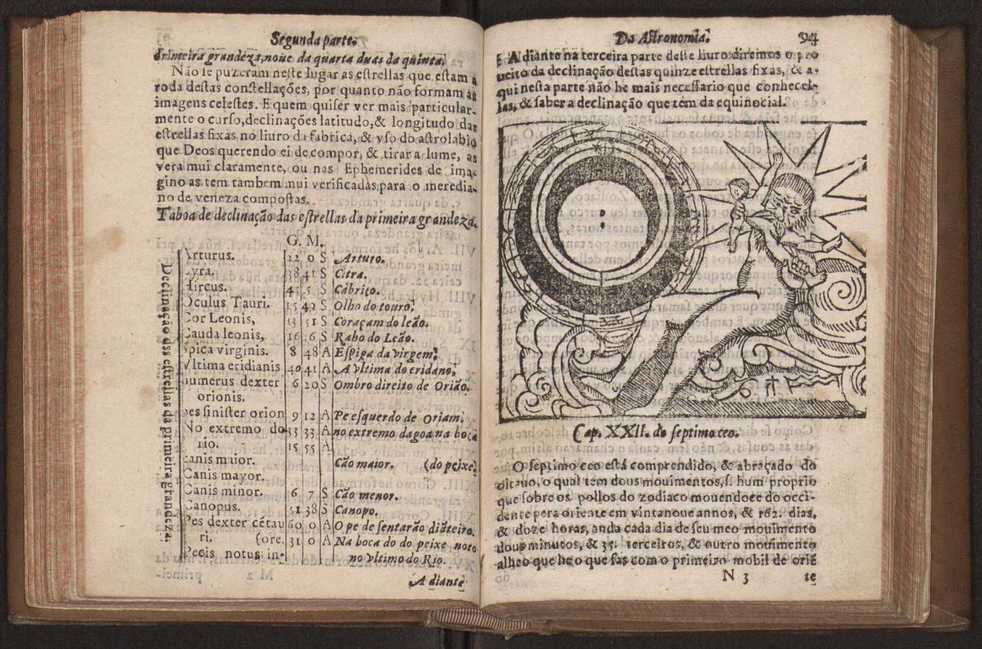 Segunda parte.
primeira grandeza, noue da quarta duas da quinta.
Não se puzeram neste lugar as estrellas que estam a
roda destas constellações, por quanto não formam as
imagens celestes. E quem quiser ver mais particular-
mente o curso, declinações latitudo, & longitudo das
estrellas fixas no liuro da fabrica, & vso do astrolabio
que Deos querendo ei de compor, & tirar a lume, as
vera mui claramente, ou nas Ephemerides de ima-
gino as tem tambem mui verificadas, para o meredia-
no de veneza compostas.
Taboa de declinação das estrellas da primeira grandeza.
Declinação das estrellas da primeira grandeza.
G. M.
Arturus. 22 0 S Arturo.
Lyra. 38 41 S Citra.
Hircus. 45 5 S Cabrito.
Oculus Tauri. 15 42 S Olho do touro.
Cor Leonis, 13 51 S Coraçam do leão.
Cauda leonis, 16 6 S Rabo do Leão.
Spica virginis. 8 48 A Espiga da virgem.
Vltima eridianis 40 41 A A vltima do eridano.
humerus dexter 6 20 S Ombro direito de Orião.
orionis.
pes sinister orion 9 12 A Pe esquerdo de Oriam.
No extremo do 33 33 A no extremo dagoa na boca
rio. 15 55 A
canis maior. Cão maior. (do peixe.
Canis mayor.
Canis minor. 6 7 S Cão menor.
Canopus. 51 38 S Canopo.
Pes dexter cétau 60 0 A O pe de sentarão diãteiro.
ri. (ore. 31 0 A Na boca do do peixe noto
Pecis notus in- no vltimo do Rio.
M 2 A diante
Da Astronomia. 94
E A diante na terceira parte deste liuro diremos o pro
ueito da declinação destas quinze estrellas fixas, & a-
qui nesta parte não he mais necessario que conhecel-
las, & saber a declinação que tem da equinocial.
Cap. XXII. do septimo ceo.
O septimo ceo está comprendido, & abraçado do
oitauo, o qual tem dous mouimentos, s. hum proprio
que sobre os pollos do zodiaco mouendoee do occi-
dente pera oriente em vintanoue annos, & 162. dias,
& doze horas, anda cada dia de seu meo mouimento
dous minutos, & 35. terceiros, & outro mouimento
alheo que he o que fas com o primeiro mobil de oriẽ
N 3 te